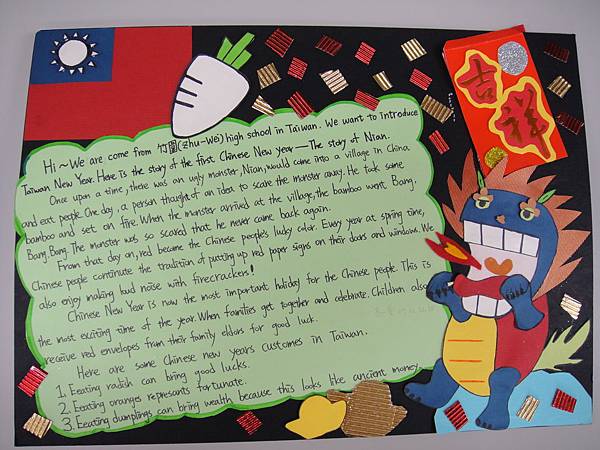 吉祥
Hi~We are come from 竹圍(Zhu-Wei) high school in Taiwan. We want to introduce
Taiwan New Year. Here is the story of the first Chinese New year—The story of Nian.
Once upon a time, there was an ugly monster, Nian, would come into a village in China
and eat people. One day, a person thought of an idea to scare the monster away. He took some
bamboo and set on fire. When the monster arrived at the village, the bamboo went Bang,
Bang, Bang. The monster was so scared that he never came back again.
From that day on, red became the Chinese people's lucky color. Every year at spring time,
Chinese people continute the tradition of putting up red paper signs on their doors and windows. We
also enjoy making loud noise with firecrackers!
Chinese New Year is now the most important holiday for the Chinese people. This is
the most exciting time of the year. When families get together and celebrate. Children also
receive red envelopes from their family elders for good luck.
Here are some Chinese new years customes in Taiwan.
1. Eeating radish can bring good lucks.
2. Eeating oranges represants fortunate.
3. Eeating dumplings can bring wealth because this looks like ancient money.